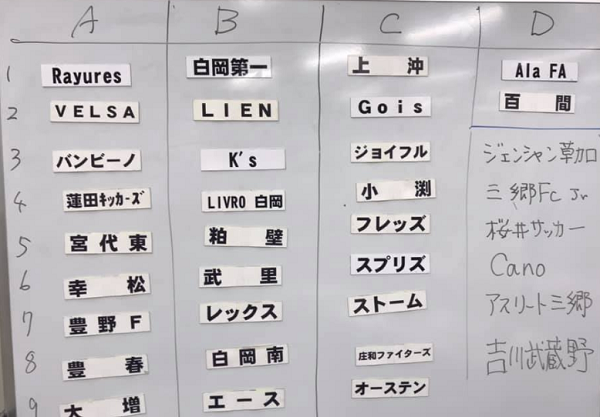 A B C D
1 Rayures 白岡第一 上沖 Ala FA
2 VELSA LIEN Gois 百間
3 バンビーノ K's ジョイフル ジェンシャン草加
4 蓮田ｷｯｶｰｽﾞ LIVRO 白岡 小渕 三郷FC Jr
5 宮代東 粕壁 フレッズ 桜井サッカー
6 幸松 武里 スプリズ Cano
7 豊野F レックス ストーム アスリート三郷
8 豊春 白岡南 庄和ファイターズ 吉川武蔵野
9 大増 エース オーステン